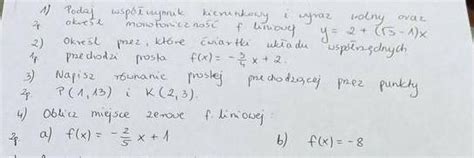 1) Podaj współczynnik kierunkowy i wyraz wolny oraz
1p określ monotoniczność f. liniowej y = 2 + (√3 - 1)x
2) Określ przez, które ćwiartki układu współrzędnych
1p przechodzi prosta f(x) = -3/5 x + 2.
3) Napisz równanie prostej przechodzącej przez punkty
2p. P(1,13) i K(2,3).
4) Oblicz miejsce zerowe f. liniowej:
2p a) f(x) = -2/5 x + 1 b) f(x) = -8